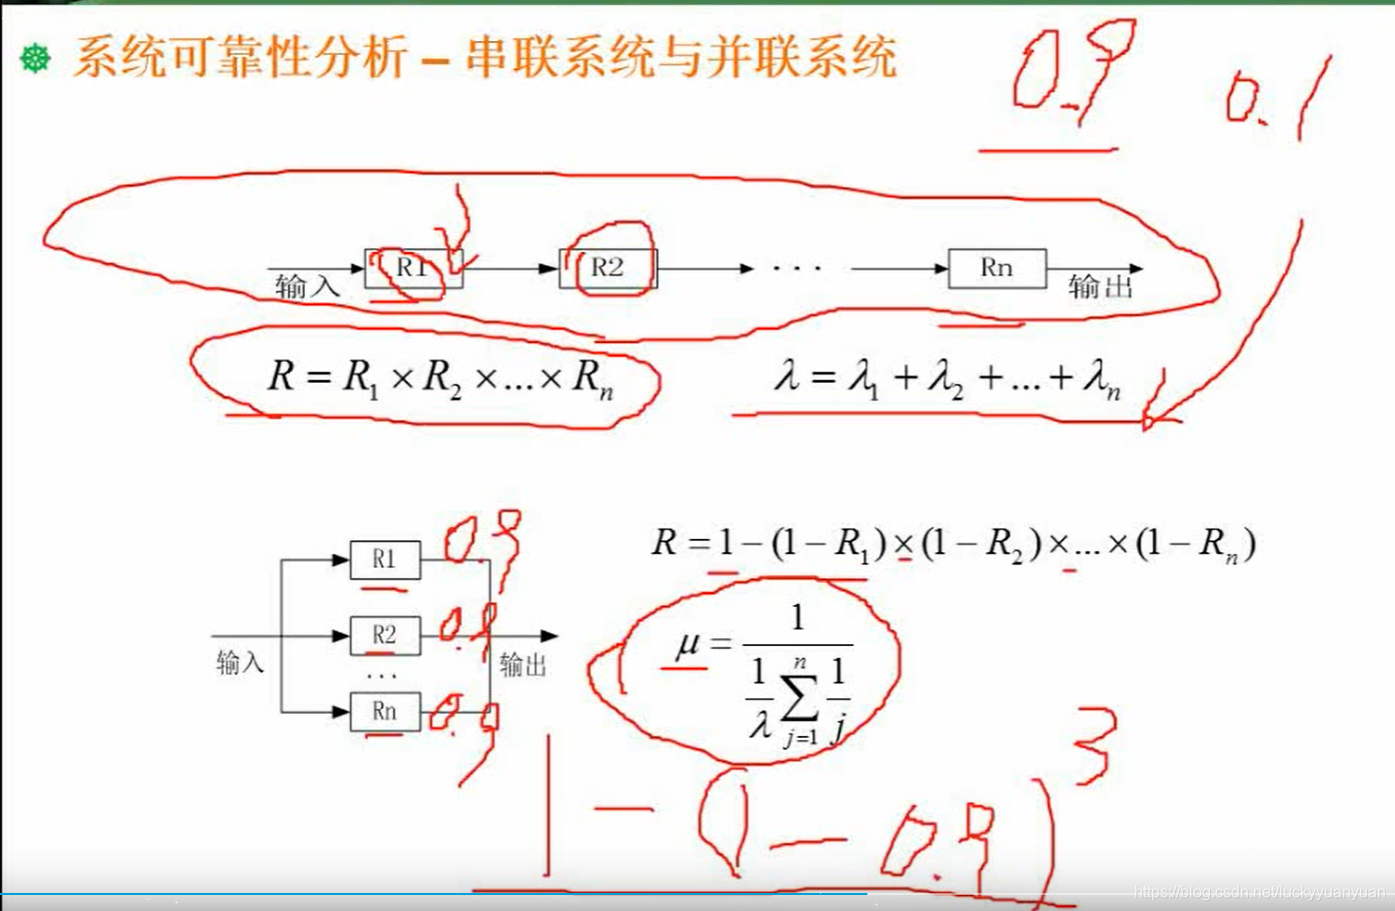 系统可靠性分析 – 串联系统与并联系统
0.9 0.1
输入 R1 R2 ··· Rn 输出
R = R₁ × R₂ × ... × Rₙ λ = λ₁ + λ₂ + ... + λₙ
R1 0.9
R = 1 − (1 − R₁) × (1 − R₂) × ... × (1 − Rₙ)
输入 R2 0.9 输出
...
Rn 0.9
μ = 1 / (1/λ ∑ⁿⱼ₌₁ 1/j)
1 − (1 − 0.9)³
https://blog.csdn.net/luckyyuanyuan